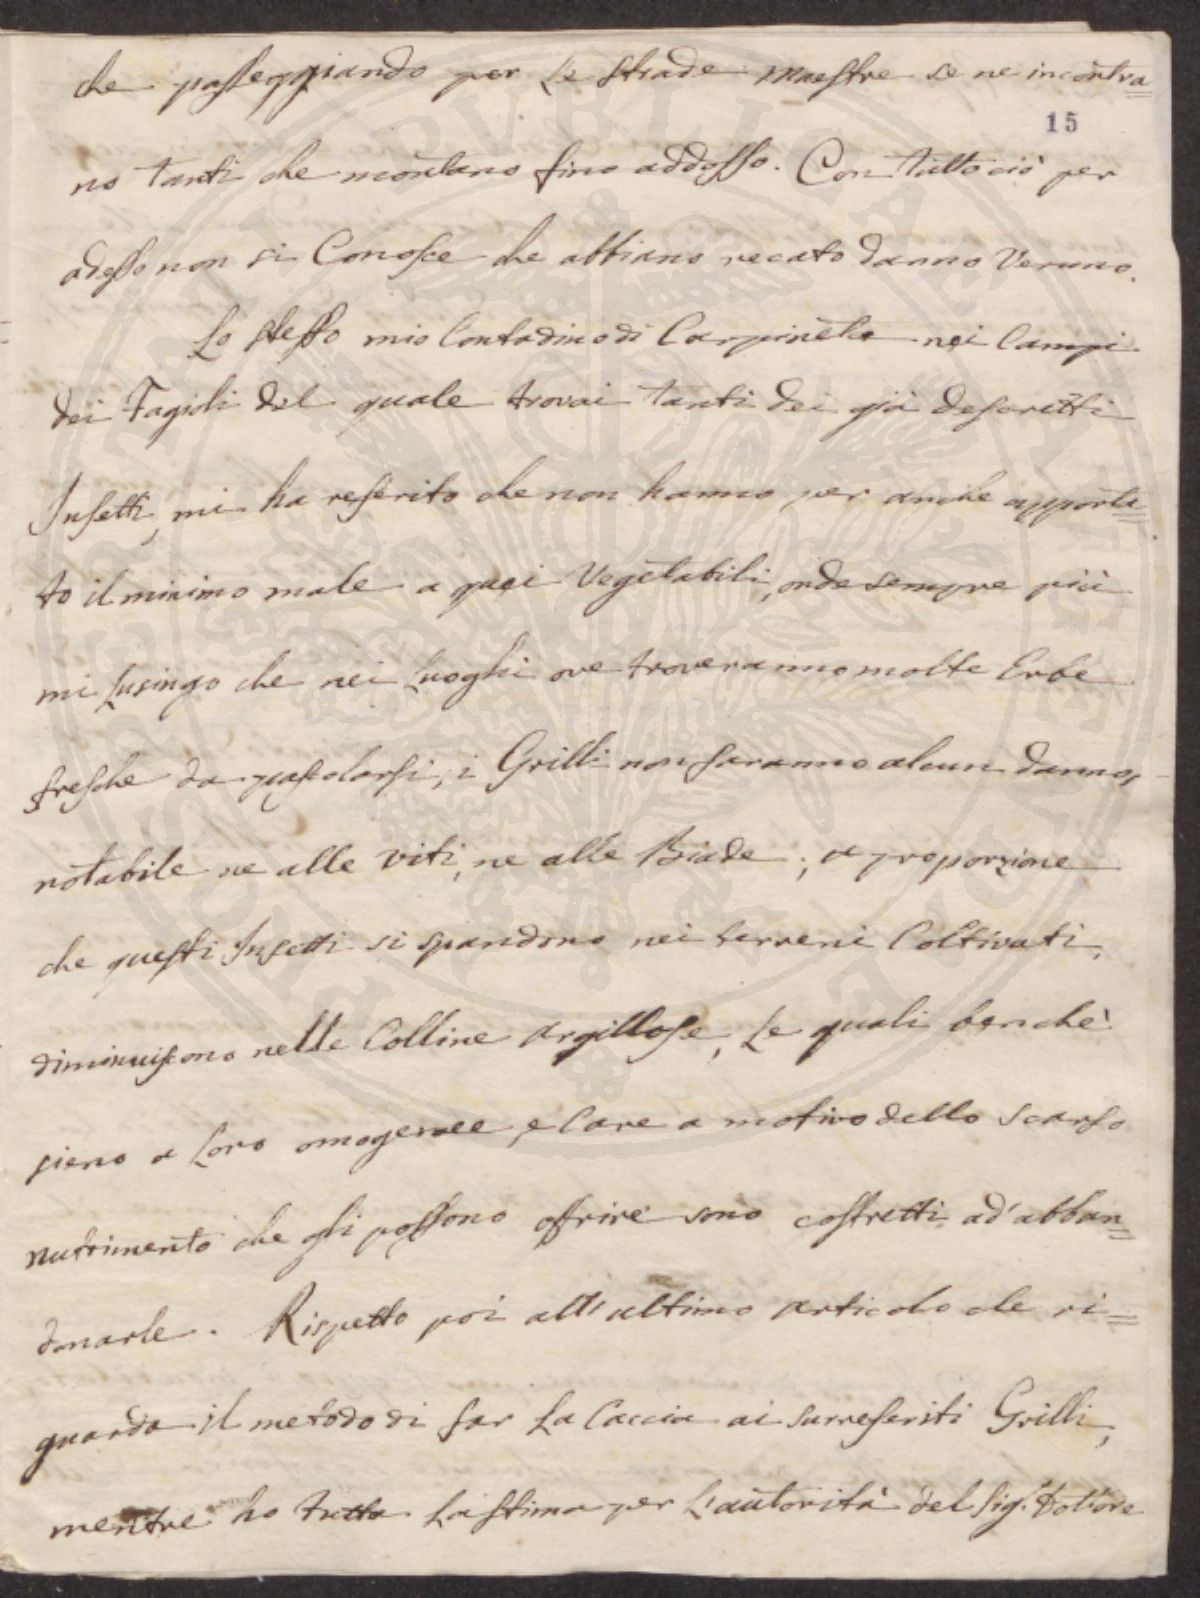 che passeggiando per le strade maestre se ne incontra=
15
no tanti che montano fino addosso. Con tutto ciò per
adesso non si Conosce che abbiano recato danno Veruno.
Lo stesso mio Contadino di Carpineta nei Campi
dei Fagioli del quale trovai tanti dei già descritti
Insetti, mi ha referito che non hanno per anche apporta=
to il minimo male a quei Vegetabili, onde sempre più
mi lusingo che nei Luoghi ove troveranno molte Erbe
fresche da pascolarsi, i Grilli non faranno alcun danno,
notabile ne alle viti, ne alle Biade; a proporzione
che questi Insetti si spandono nei terreni Coltivati,
diminuiscono nelle Colline argillose, le quali benchè
sieno a Loro omogenee, e Care a motivo dello scarso
nutrimento che gli possono offrire sono costretti ad'abban=
donarle. Rispetto poi all'ultimo articolo che ri=
guarda il metodo di far la Caccia ai surreferiti Grilli,
mentre ho tutta la stima per l'autorità del Sig.r Dottore